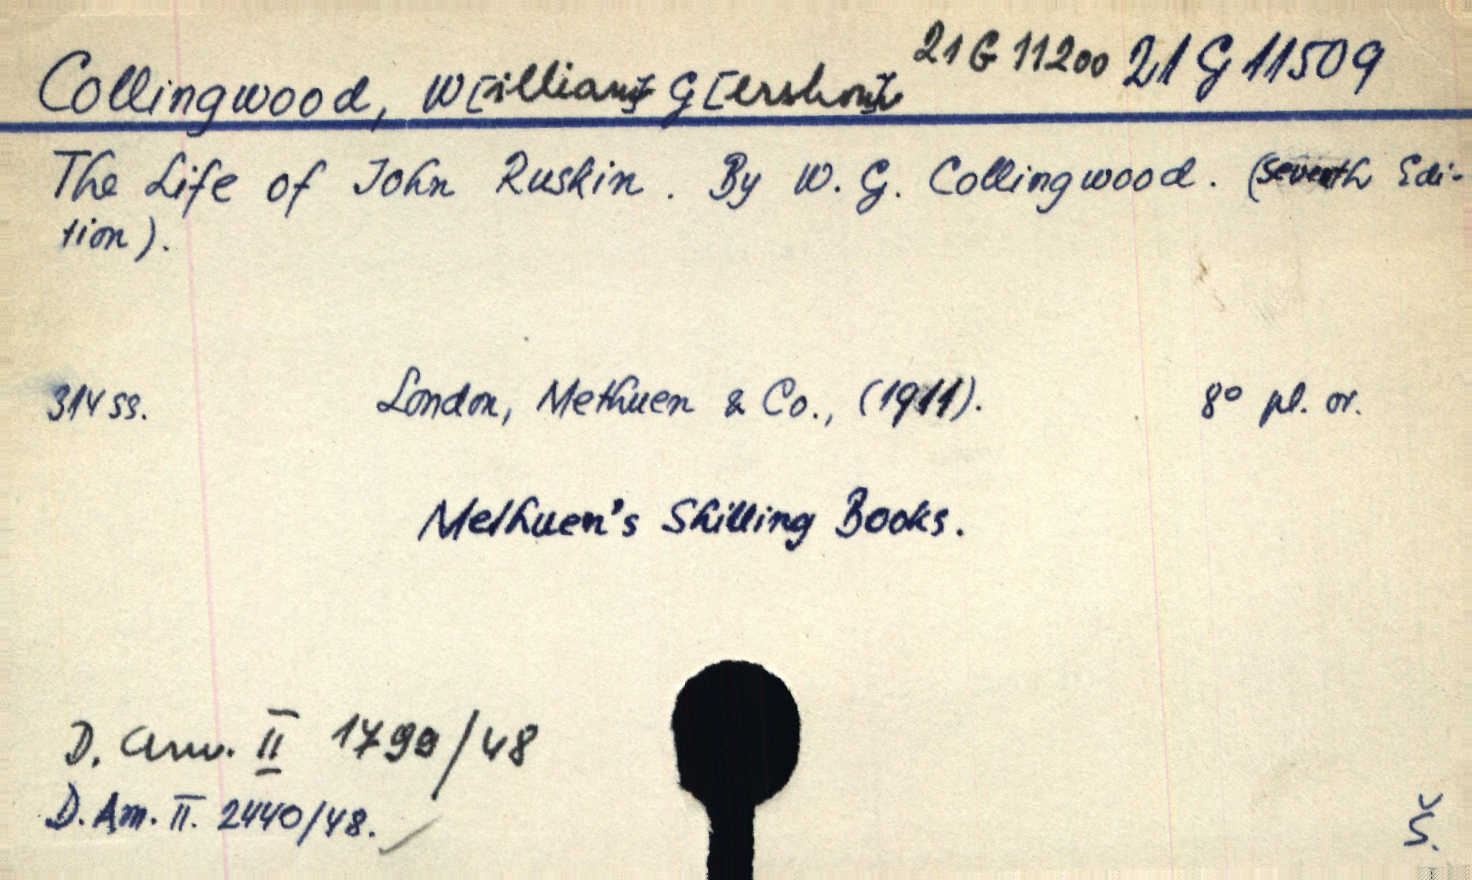 Collingwood, W[illiam] G[ershom] 21 G 11200 21 G 11509
The Life of John Ruskin. By W. G. Collingwood. (Seventh Edi-
tion).
314 ss. London, Methuen & Co., (1911). 8° pl. or.
Methuen's Shilling Books.
D. Am. II 1790/48
D. Am. II. 2440/48.
Š.